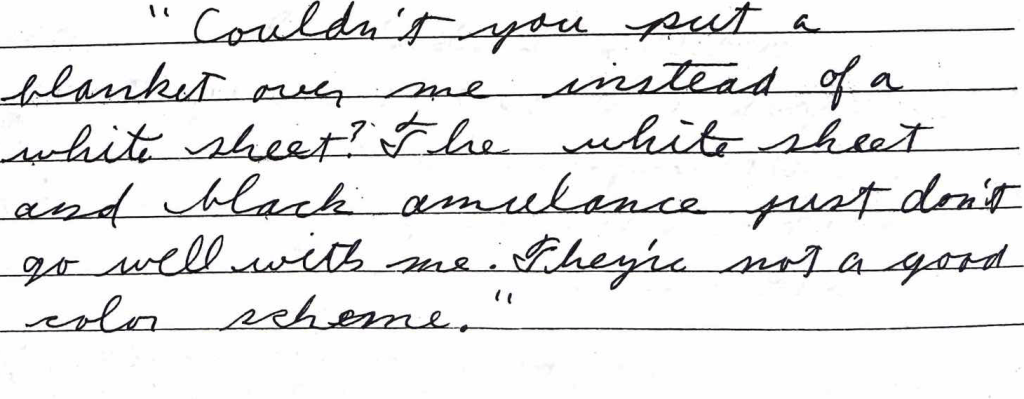 "Couldn't you put a
blanket over me instead of a
white sheet? The white sheet
and black amulance just don't
go well with me. They're not a good
color scheme."